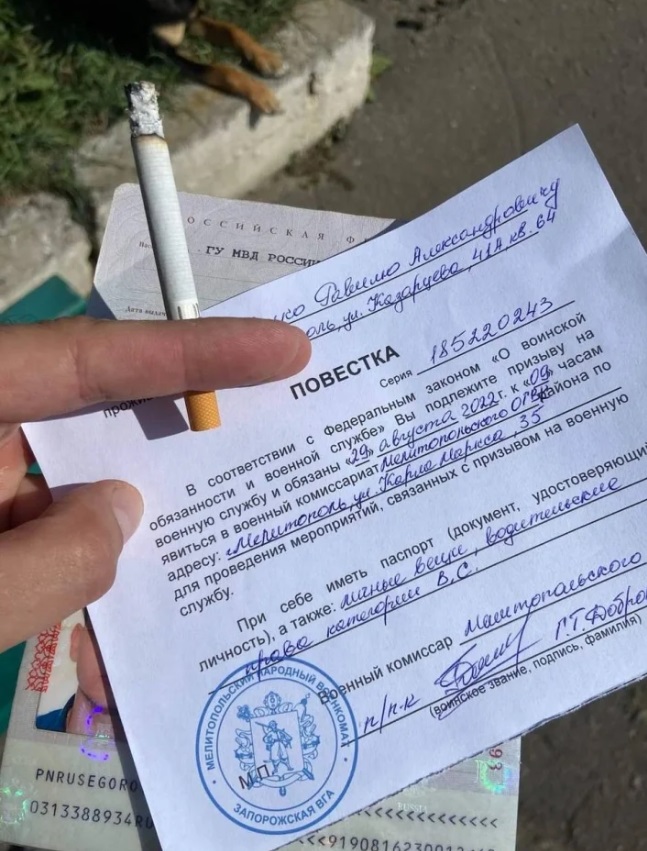 РОССИЙСКАЯ
ГУ МВД РОССИИ
Дата выдачи
Равилю Александровичу
ул. Казарцева, 41А, кв. 64
ПОВЕСТКА
Серия 185220243
В соответствии с Федеральным законом «О воинской
обязанности и военной службе» Вы подлежите призыву на
военную службу и обязаны «29» августа 2022 г. к «09» часам
явиться в военный комиссариат Мелитопольского ОГВР района по
адресу: г. Мелитополь, ул. Карла Маркса, 35
для проведения мероприятий, связанных с призывом на военную
службу.
При себе иметь паспорт (документ, удостоверяющий
личность), а также: личные вещи, водительские
права категории В.С.
Военный комиссар Мелитопольского
п/п-к Г.Т. Добров
(воинское звание, подпись, фамилия)
М.П.
МЕЛИТОПОЛЬСКИЙ НАРОДНЫЙ ВОЕНКОМАТ
ЗАПОРОЖСКАЯ ВГА
PNRUSEGORO
0313388934RU
<<<<9190816230012